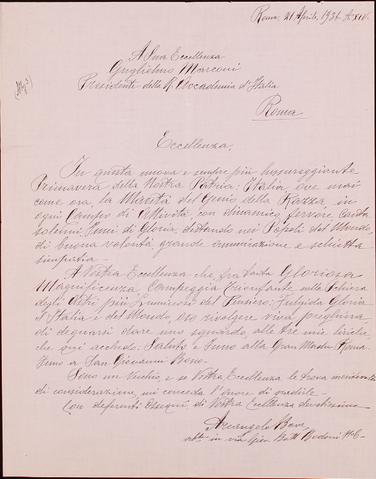 Roma, 21 Aprile, 1936. A. XIV.
A Sua Eccellenza
Guglielmo Marconi
Presidente della R. Accademia d'Italia
Roma
Eccellenza,
In questa nuova e sempre più lussureggiante
Primavera della Nostra Patria: Italia ove mai
come ora, la Maestà del Genio della Razza in
ogni Campo di Attività con dinamico fervore canta
solenni Inni di Gloria, destando nei Popoli del Mondo,
di buona volontà grande ammirazione e schietta
simpatia.
A Vostra Eccellenza che, fra tanta Gloriosa
Magnificenza Campeggia Trionfante nella Schiera
degli Astri più Luminosi del Pensiero: Fulgida Gloria
d'Italia e del Mondo oso rivolgere viva preghiera
di degnarsi dare uno sguardo, alle tre mie liriche
che qui accludo: Saluto e Inno alla Gran Madre Roma
Inno a San Giovanni Bosco.
Sono un Vecchio, e se Vostra Eccellenza le trova meritevoli
di considerazione, mi conceda l'onore di gradirle.
Con deferenti Ossequi di Vostra Eccellenza devotissimo
Arcangelo Bava
abit. in via Gian Batt. Bodoni